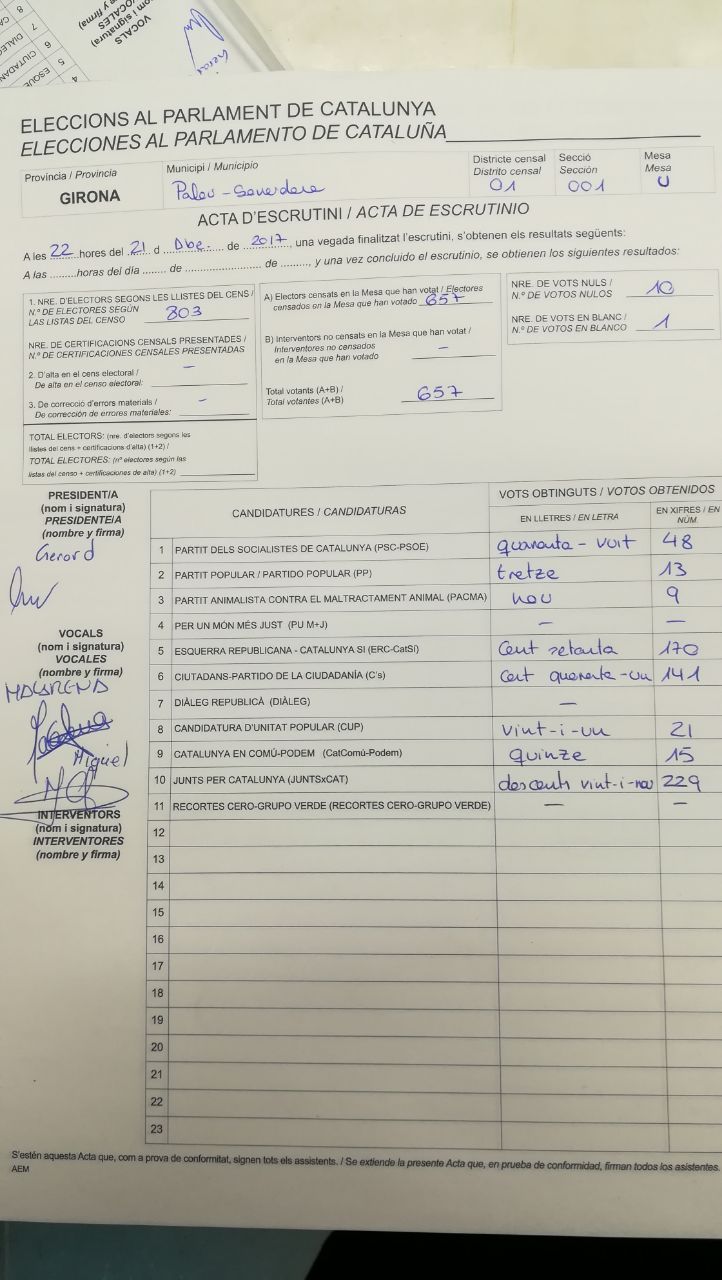 VOCALS
(nom i signatura)
VOCALES
8
7
6
5
4
DIÀLEG
CIUTADAN
ESQUE
ELECCIONS AL PARLAMENT DE CATALUNYA
ELECCIONES AL PARLAMENTO DE CATALUÑA
Província / Provincia
GIRONA
Municipi / Municipio
Palau-Saverdera
Districte censal
Distrito censal
01
Secció
Sección
001
Mesa
Mesa
U
ACTA D'ESCRUTINI / ACTA DE ESCRUTINIO
A les 22 hores del 21 d Dbe. de 2017, una vegada finalitzat l'escrutini, s'obtenen els resultats següents:
A las .........horas del día ....... de ........................ de ........, y una vez concluido el escrutinio, se obtienen los siguientes resultados:
1. NRE. D'ELECTORS SEGONS LES LLISTES DEL CENS /
N.º DE ELECTORES SEGÚN
LAS LISTAS DEL CENSO 803
NRE. DE CERTIFICACIONS CENSALS PRESENTADES /
N.º DE CERTIFICACIONES CENSALES PRESENTADAS
2. D'alta en el cens electoral / –
De alta en el censo electoral:
3. De correcció d'errors materials / –
De corrección de errores materiales:
TOTAL ELECTORS: (nre. d'electors segons les
llistes del cens + certificacions d'alta) (1+2) /
TOTAL ELECTORES: (nº electores según las
listas del censo + certificaciones de alta) (1+2)
A) Electors censats en la Mesa que han votat / Electores
censados en la Mesa que han votado 657
B) Interventors no censats en la Mesa que han votat /
Interventores no censados
en la Mesa que han votado –
Total votants (A+B) /
Total votantes (A+B) 657
NRE. DE VOTS NULS /
N.º DE VOTOS NULOS 10
NRE. DE VOTS EN BLANC /
N.º DE VOTOS EN BLANCO 1
PRESIDENT/A
(nom i signatura)
PRESIDENTE/A
(nombre y firma)
Gerard
VOCALS
(nom i signatura)
VOCALES
(nombre y firma)
MACARENA
Miguel
INTERVENTORS
(nom i signatura)
INTERVENTORES
(nombre y firma)
CANDIDATURES / CANDIDATURAS
VOTS OBTINGUTS / VOTOS OBTENIDOS
EN LLETRES / EN LETRA
EN XIFRES / EN NÚM.
1 PARTIT DELS SOCIALISTES DE CATALUNYA (PSC-PSOE) quaranta-vuit 48
2 PARTIT POPULAR / PARTIDO POPULAR (PP) tretze 13
3 PARTIT ANIMALISTA CONTRA EL MALTRACTAMENT ANIMAL (PACMA) nou 9
4 PER UN MÓN MÉS JUST (PU M+J) – –
5 ESQUERRA REPUBLICANA - CATALUNYA SÍ (ERC-CatSí) Cent setanta 170
6 CIUTADANS-PARTIDO DE LA CIUDADANÍA (C's) Cent quaranta-un 141
7 DIÀLEG REPUBLICÀ (DIÀLEG) –
8 CANDIDATURA D'UNITAT POPULAR (CUP) vint-i-un 21
9 CATALUNYA EN COMÚ-PODEM (CatComú-Podem) quinze 15
10 JUNTS PER CATALUNYA (JUNTSxCAT) descents vint-i-nou 229
11 RECORTES CERO-GRUPO VERDE (RECORTES CERO-GRUPO VERDE) – –
12
13
14
15
16
17
18
19
20
21
22
23
S'estén aquesta Acta que, com a prova de conformitat, signen tots els assistents. / Se extiende la presente Acta que, en prueba de conformidad, firman todos los asistentes.
AEM